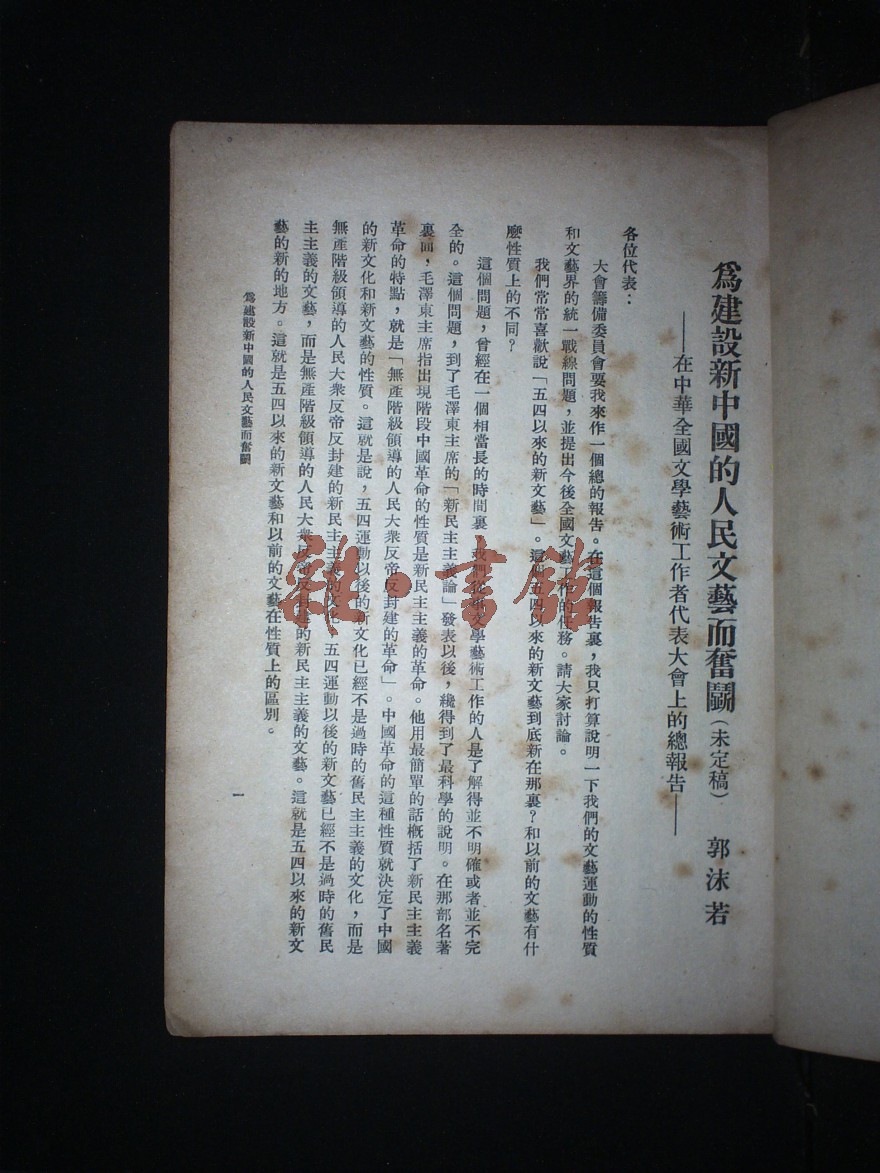 爲建設新中國的人民文藝而奮鬭(未定稿) 郭沫若
——在中華全國文學藝術工作者代表大會上的總報告——
各位代表：
大會籌備委員會要我來作一個總的報告。在這個報告裏，我只打算說明一下我們的文藝運動的性質
和文藝界的統一戰線問題，並提出今後全國文藝工作的任務。請大家討論。
我們常常喜歡說「五四以來的新文藝」。這個五四以來的新文藝到底新在那裏？和以前的文藝有什
麽性質上的不同？
這個問題，曾經在一個相當長的時間裏，我們從事文學藝術工作的人是了解得並不明確或者並不完
全的。這個問題，到了毛澤東主席的「新民主主義論」發表以後，纔得到了最科學的說明。在那部名著
裏面，毛澤東主席指出現階段中國革命的性質是新民主主義的革命。他用最簡單的話概括了新民主主義
革命的特點，就是「無產階級領導的人民大衆反帝反封建的革命」。中國革命的這種性質就決定了中國
的新文化和新文藝的性質。這就是說，五四運動以後的新文化已經不是過時的舊民主主義的文化，而是
無產階級領導的人民大衆反帝反封建的新民主主義的文化，五四運動以後的新文藝已經不是過時的舊民
主主義的文藝，而是無產階級領導的人民大衆反帝反封建的新民主主義的文藝。這就是五四以來的新文
藝的新的地方。這就是五四以來的新文藝和以前的文藝在性質上的區別。
爲建設新中國的人民文藝而奮鬭
一
雜·書館